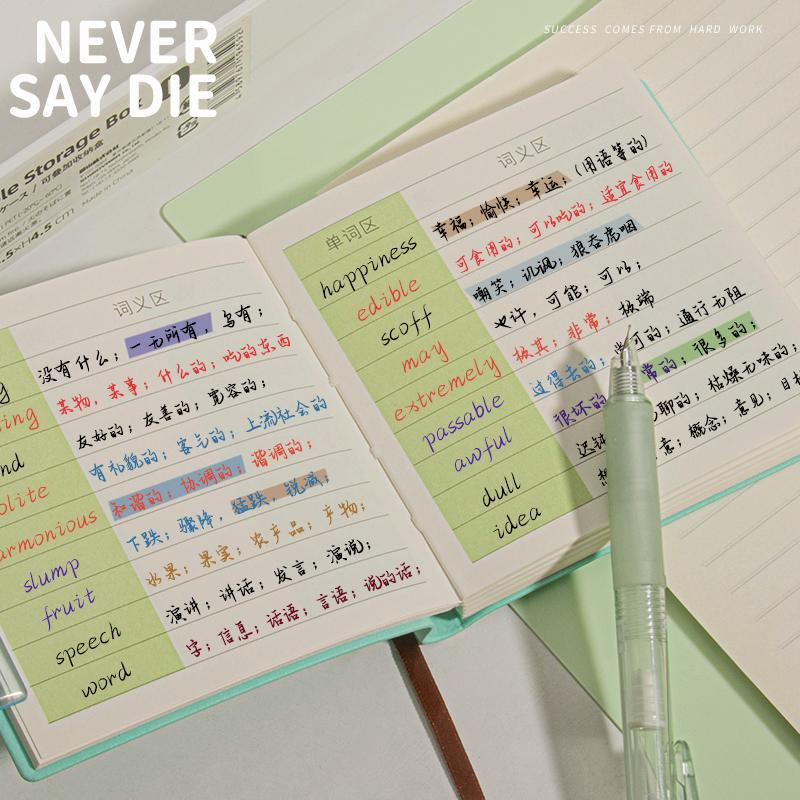 NEVER
SAY DIE
SUCCESS COMES FROM HARD WORK
le Storage Box
ケース / 可叠加收纳盒
Made in China
词义区
没有什么；一无所有，乌有；
某物，某事；什么的；吃的东西
nd 友好的；友善的；宽容的；
olite 有礼貌的；客气的；上流社会的
armonious 和谐的；协调的；谐调的；
slump 下跌；骤降，猛跌，锐减；
fruit 水果；果实；农产品；产物；
speech 演讲；讲话；发言；演说；
word 字；信息；话语；言语；说的话；
单词区 词义区
happiness 幸福；愉快；幸运；(用语等的)
edible 可食用的；可以吃的；适宜食用的
scoff 嘲笑；讥讽；狼吞虎咽
may 也许，可能；可以；
extremely 极其；非常；极端
passable 过得去的；尚可的；通行无阻
awful 很坏的 常的；很多的；
dull 迟钝 聊的；枯燥无味的；
idea 想 意；概念；意见；目标